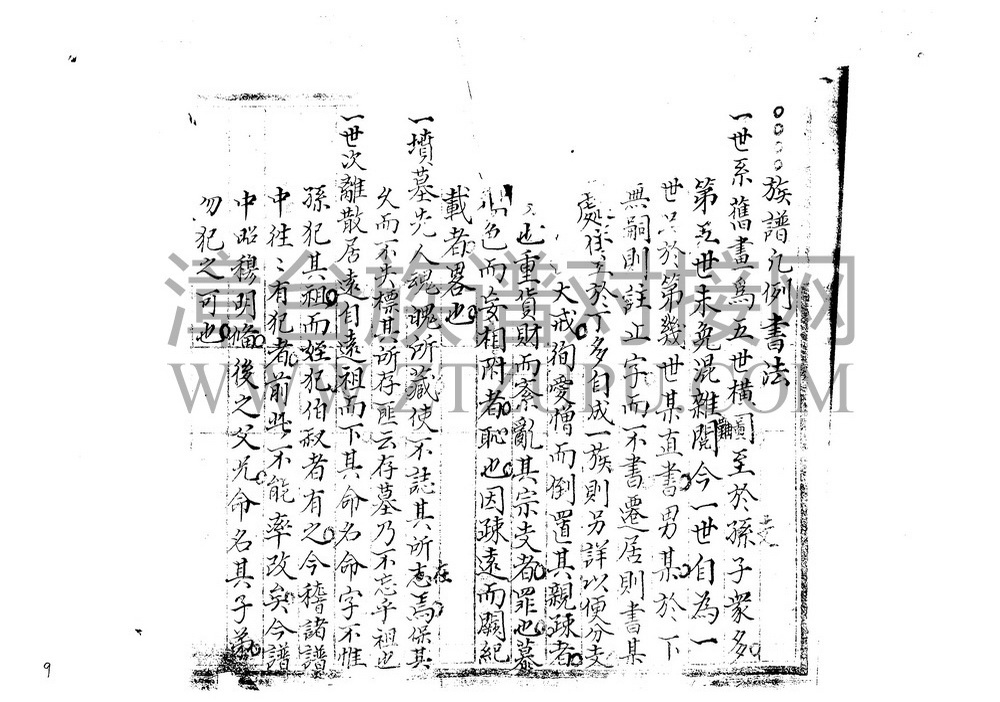 族譜凡例書法
一世系舊畫爲五世橫圖至於孫子衆多
第五世未免混雜難閱今一世自為一
世只於第幾世某直書男某於下
無嗣則註止字而不書遷居則書某
處住至於丁多自成一族則另詳以便分支
大戒徇愛憎而倒置其親疎者
也重貨財而紊亂其宗支者罪也慕
色而妄相附者恥也因疎遠而闕紀
載者畧也
一墳墓先人魂魄所藏使不誌其所在焉保其
久而不失標其所存匪云存墓乃不忘乎祖也
一世次離散居遠自遠祖而下其命名命字不惟
孫犯其祖而姪犯伯叔者有之今稽諸譜
中徃〻有犯者前此不能率改矣今譜
中昭穆明脩後之父兄命名其子弟
勿犯之可也
漳台族谱对接网
WWW.ZTZUPU.COM
9